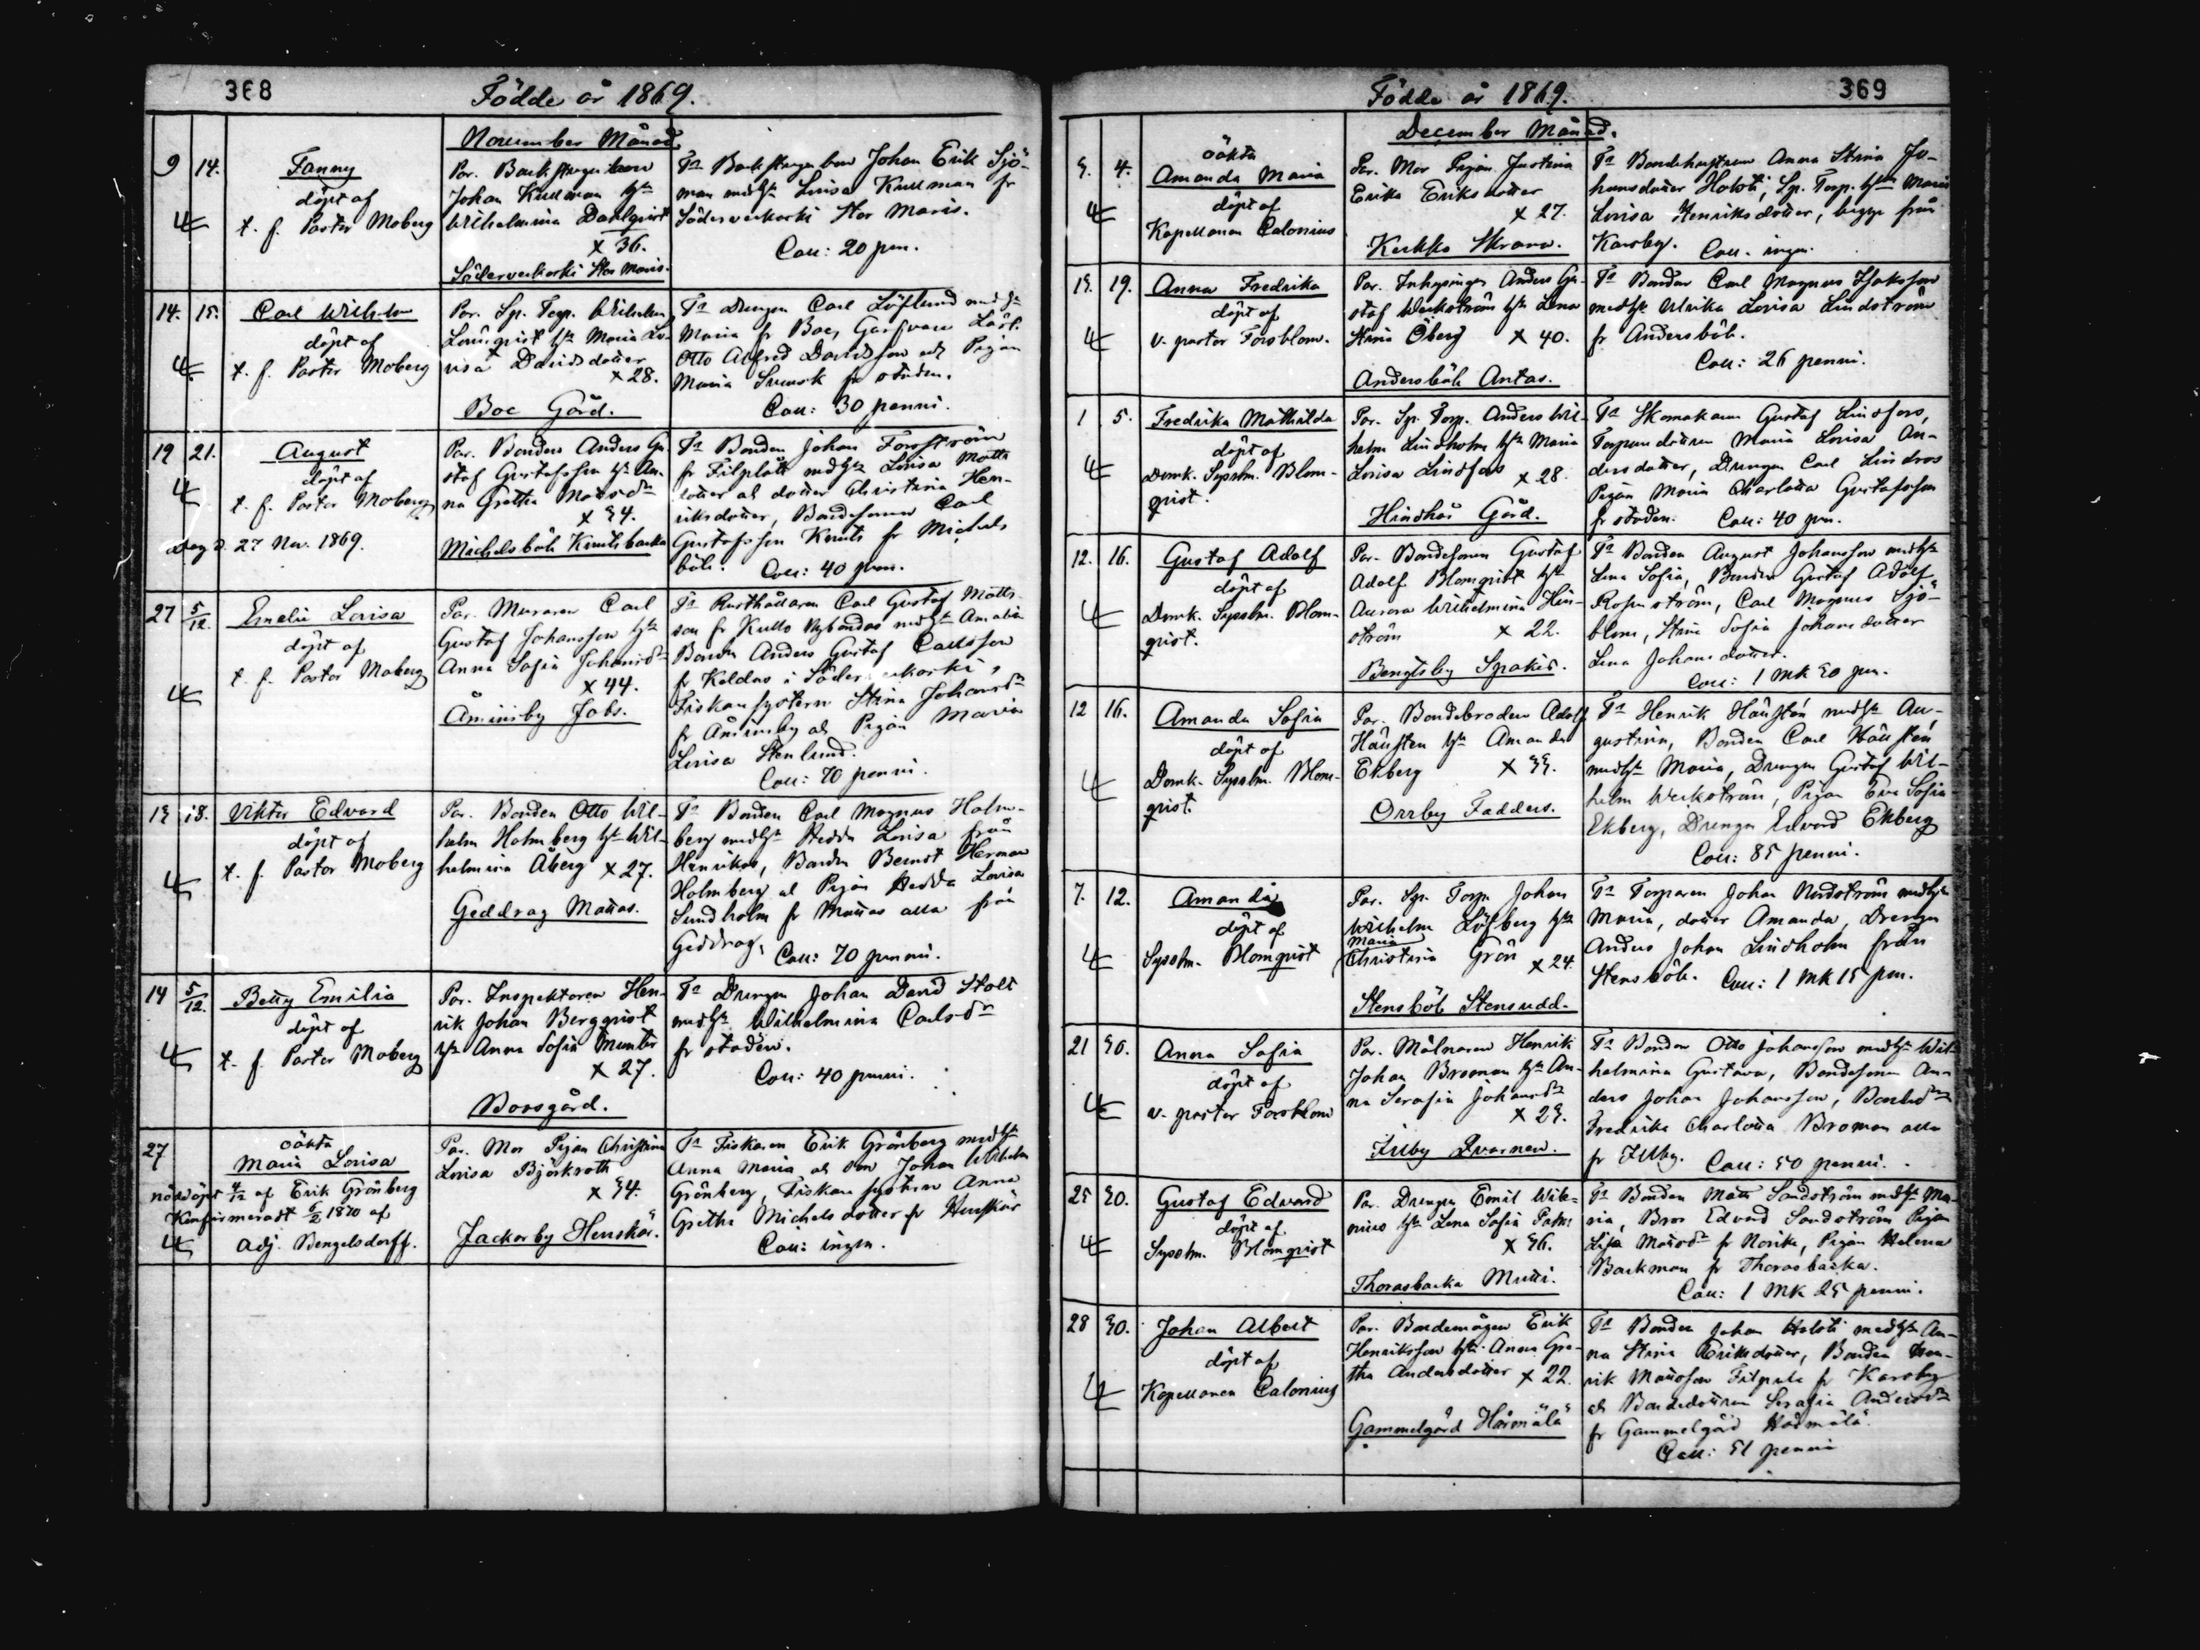 368
Födde år 1869.
November Månad.
9 14.
Fanny
döpt af
t. f. Pastor Moberg
Par. Backstugukarl
Johan Kullman h:u
Wilhelmina Dahlqvist
x 36.
Söderveckoski Stor Maris.
Fa Backstugukarl Johan Erik Sjö-
man med h:u Lovisa Kullman fr
Söderveckoski Stor Maris.
Coll: 20 pen.
14. 15.
Carl Wilhelm
döpt af
t. f. Pastor Moberg
Par. Sp. Torp. Wilhelm
Lönnqvist h:u Maria Lo-
visa Davidsdotter
x 28.
Boe Gård.
Fa Drengen Carl Löflund med h:u
Maria fr Boe,
Otto Alfred Davidsson och Pigan
Maria Svensk fr staden.
Coll: 30 penni.
19 21.
August
döpt af
t. f. Pastor Moberg
27 Nov. 1869.
Par. Bonden Anders Gu-
staf Gustafsson h:u An-
na Gretha Matsd:r
x 34.
Michelsböle Knutsbacka
Fa Bonden Johan Forsström
fr FilpLåts med h:u Lovisa Matts
dotter och dotter Christina Hen-
riksdotter, Bondesonen Carl
Gustafsson Knuts fr Michels
böle. Coll: 40 pen.
27 5/12.
Emelie Lovisa
döpt af
t. f. Pastor Moberg
Par. Muraren Carl
Gustaf Johansson h:u
Anna Sofia Johansd:r
x 44.
Åminsby Jobs.
Fa Rusthållaren Carl Gustaf Matts-
son fr Kullo Nybondas med h:u Amalia
Bonden Anders Gustaf Carlsson
fr Keldas i Söderveckoski,
Fiskarsystern Stina Johansd:r
fr Åminsby och Pigan Maria
Lovisa Stenlund.
Coll: 70 penni.
13 18.
Viktor Edvard
döpt af
t. f. Pastor Moberg
Par. Bonden Otto Wil-
helm Holmberg h:u Wil-
helmina Åberg x 27.
Geddrag Mattas.
Fa Bonden Carl Magnus Holm-
berg med h:u Hedda Lovisa från
Henrikas, Bonden Berndt Herman
Holmberg och Pigan Hedda Lovisa
Sundholm fr Mattas alla från
Geddrag. Coll: 70 penni.
14 5/12.
Betty Emilia
döpt af
t. f. Pastor Moberg
Par. Inspektoren Hen-
rik Johan Bergqvist
h:u Anna Sofia Munter
x 27.
Borsgård.
Fa Drengen Johan David Stolt
med h:u Wilhelmina Carlsd:r
fr staden.
Coll: 40 penni.
27
oäkta
Maria Lovisa
nöddöpt 4/12 af Erik Grönberg
Konfirmeradt 6/2 1870 af
Adj. Bengelsdorff.
Par. Mor Pigan Christina
Lovisa Björkroth
x 34.
Jackarby Henskär.
Fa Fiskaren Erik Grönberg med h:u
Anna Maria, och son Johan Wilhelm
Grönberg, Fiskarsystern Anna
Gretha Michelsdotter fr Henskär
Coll: ingen.
369
Födde år 1869.
December Månad.
3. 4.
oäkta
Amanda Maria
döpt af
Kapellanen Calonius
Par. Mor Pigan Justina
Erika Eriksdotter
x 27.
Kerkko Skrava.
Fa Bondehustrun Anna Stina Jo-
hansdotter Holsti, Sp. Torp. h:u Maria
Lovisa Henriksdotter, begge från
Karsby. Coll. ingen.
13. 19.
Anna Fredrika
döpt af
v. pastor Forsblom.
Par. Inhysingen Anders Gu-
staf Weckström h:u Lena
Stina Öberg x 40.
Andersböle Antas.
Fa Bonden Carl Magnus Isaksson
med h:u Ulrika Lovisa Lindström
fr Andersböle.
Coll: 26 penni.
1 5.
Fredrika Mathilda
döpt af
Domk. Syssm. Blom-
qvist.
Par. Sp. Torp. Anders Wil-
helm Lindholm h:u Maria
Lovisa Lindfors x 28
Hindhår Gård.
Fa Skomakaren Gustaf Lindfors,
Torparedottren Maria Lovisa An-
dersdotter, Drengen Carl Lindros
Pigan Maria Charlotta Gustafsson
fr staden. Coll: 40 pen.
12. 16.
Gustaf Adolf
döpt af
Domk. Syssm. Blom-
qvist.
Par. Bondesonen Gustaf
Adolf Blomqvist h:u
Aurora Wilhelmina Hen-
ström x 22.
Bengtsby Spakis.
Fa Bonden August Johansson med h:u
Lena Sofia, Bonden Gustaf Adolf
Rosenström, Carl Magnus Sjö-
blom, Stina Sofia Johansdotter
Lena Johansdotter.
Coll: 1 mk 30 pen.
12 16.
Amanda Sofia
döpt af
Domk. Syssm. Blom-
qvist.
Par. Bondebroden Adolf
Hällstén h:u Amanda
Ekberg x 33.
Orrby Fadders.
Fa Henrik Hällstén med h:u Au-
gustina, Bonden Carl Hällstén
med h:u Maria, Drengen Gustaf Wil-
helm Weckström, Pigan Eva Sofia
Ekberg, Drengen Edvard Ekberg
Coll: 85 penni.
7. 12.
Amanda
döpt af
Syssm. Blomqvist
Par. Sp. Torp. Johan
Wilhelm Löfberg h:u
Maria
Christina Grön x 24.
Stensböle Stensudd.
Fa Torparen Johan Nordström med h:u
Maria, dotter Amanda, Drengen
Anders Johan Lindholm från
Stensböle. Coll: 1 mk 15 pen.
21 30.
Anna Sofia
döpt af
v. pastor Forsblom
Par. Mölnaren Henrik
Johan Broman h:u An-
na Serafia Johansd:r
x 23.
Illby Qvarnen.
Fa Bonden Otto Johansson med h:u Wil-
helmina Gustava, Bondesonen An-
ders Johan Johansson,
Fredrika Charlotta Broman alla
fr Illby. Coll: 50 penni.
25 30.
Gustaf Edvard
döpt af
Syssm. Blomqvist
Par. Drengen Emil Wile-
nius h:u Lena Sofia
x 36.
Thorasbacka Mutti.
Fa Bonden Matts Sandström med h:u Ma-
ria, Bror Edvard Sandström Pigan
Lisa Matsd:r fr Norike, Pigan Helena
Backman fr Thorasbacka.
Coll: 1 mk 25 penni.
28 30.
Johan Albert
döpt af
Kapellanen Calonius
Par. Bondemågen Erik
Henriksson h:u Anna Gre-
tha Andersdotter x 22.
Gammelgård Härmälä
Fa Bonden Johan Holsti med h:u An-
na Stina Eriksdotter, Bonden Hen-
rik Mattsson Filpula fr Karsby
och Bondedottren Serafia Andersd:r
fr Gammelgård Härmälä.
Coll: 51 penni